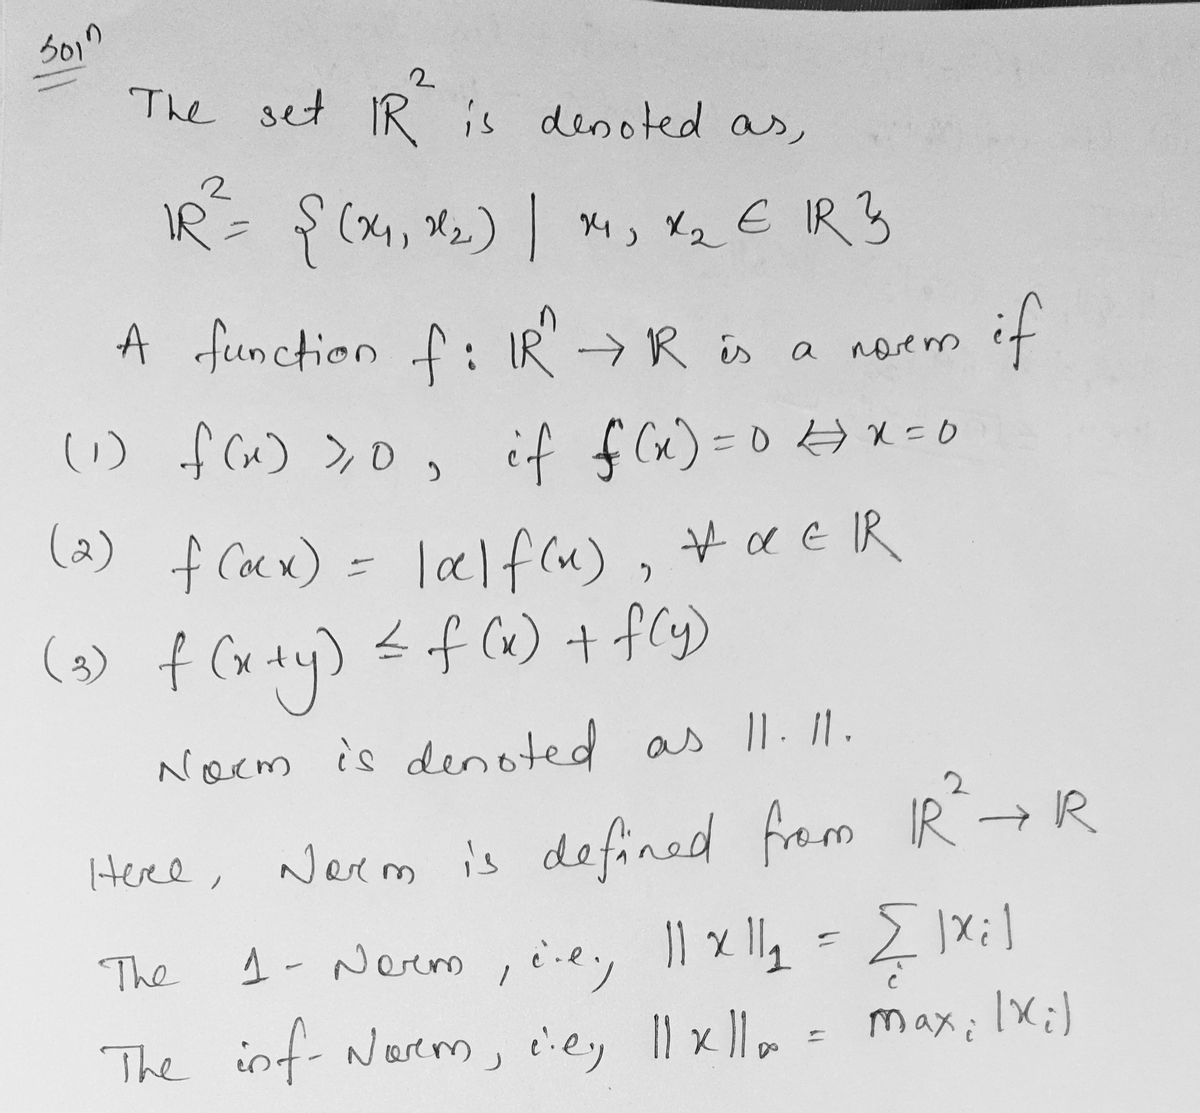 Solⁿ
The set ℝ² is denoted as,
ℝ² = {(x₁, x₂) | x₁, x₂ ∈ ℝ}
A function f : ℝⁿ → ℝ is a norm if
(1) f(x) ≥ 0, if f(x) = 0 ⇔ x = 0
(2) f(αx) = |α| f(x), ∀ α ∈ ℝ
(3) f(x+y) ≤ f(x) + f(y)
Norm is denoted as ||.||.
Here, Norm is defined from ℝ² → ℝ
The 1-Norm, i.e., ||x||₁ = ∑ᵢ |xᵢ|
The inf-Norm, i.e., ||x||∞ = maxᵢ |xᵢ|